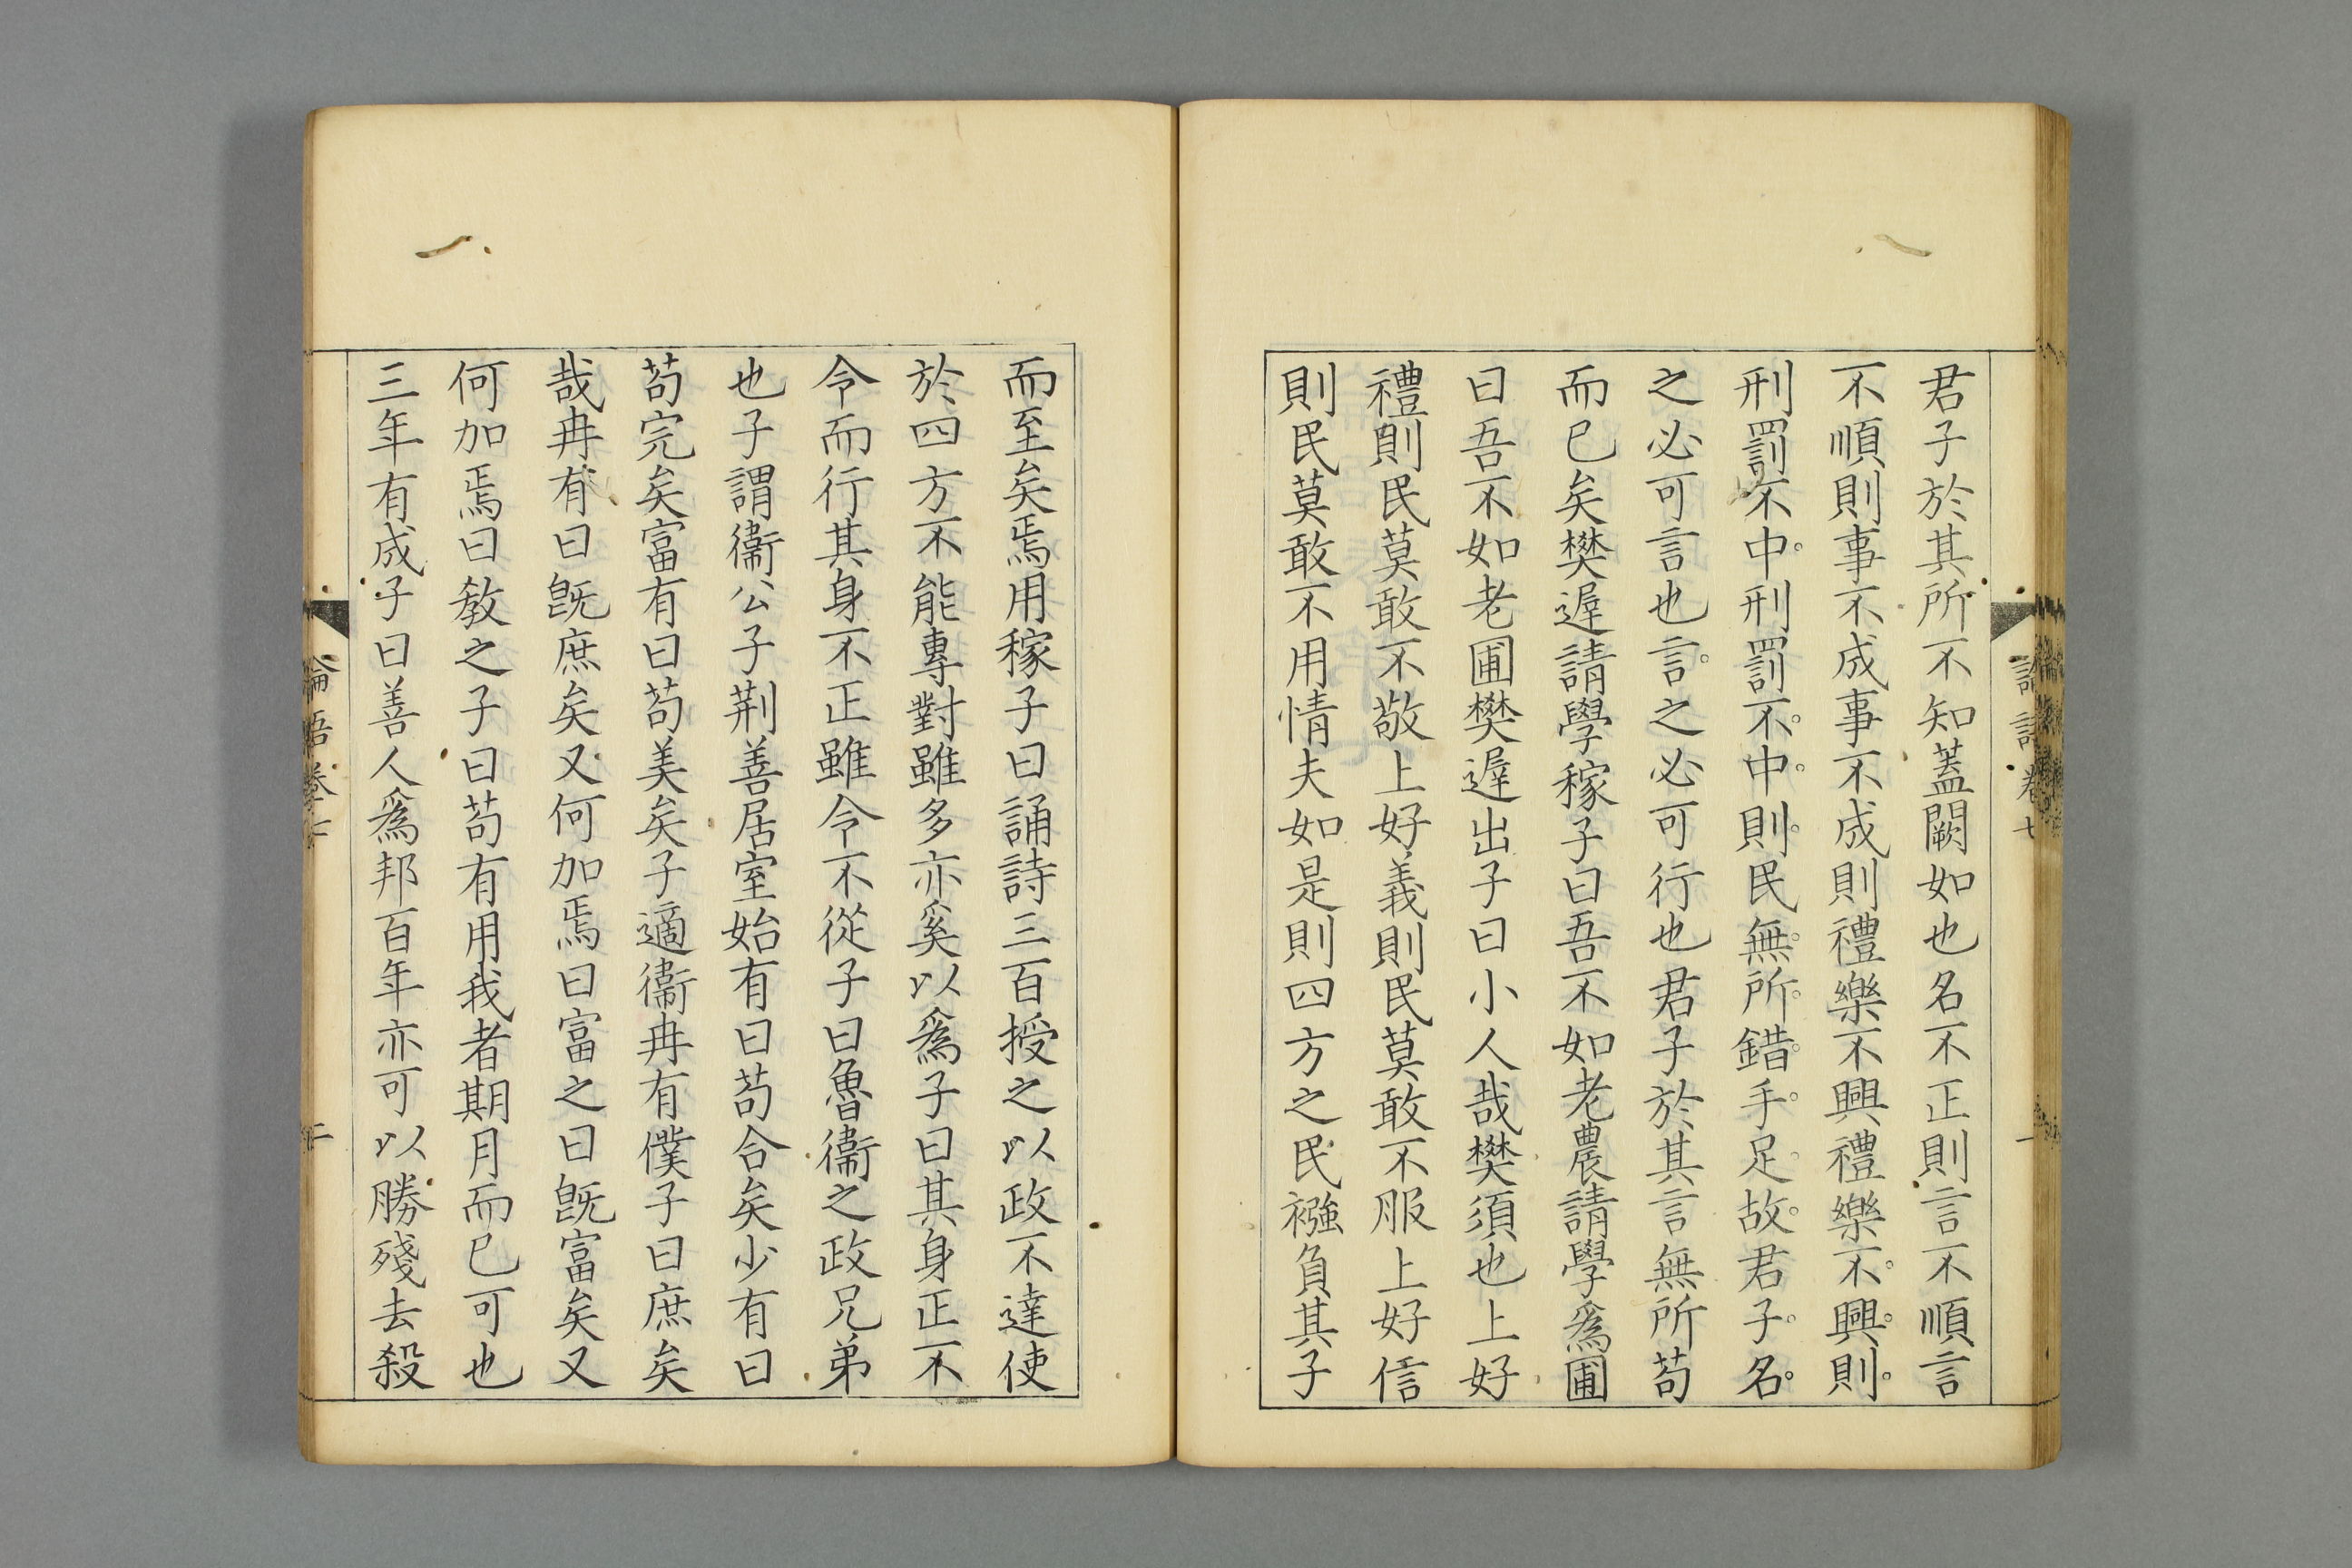 君子於其所不知蓋闕如也名不正則言不順言
不順則事不成事不成則禮樂不興禮樂不興則
刑罰不中刑罰不中則民無所錯手足故君子名
之必可言也言之必可行也君子於其言無所苟
而已矣樊遲請學稼子曰吾不如老農請學爲圃
曰吾不如老圃樊遲出子曰小人哉樊須也上好
禮則民莫敢不敬上好義則民莫敢不服上好信
則民莫敢不用情夫如是則四方之民襁負其子
而至矣焉用稼子曰誦詩三百授之以政不達使
於四方不能專對雖多亦奚以爲子曰其身正不
令而行其身不正雖令不從子曰魯衞之政兄弟
也子謂衞公子荆善居室始有曰苟合矣少有曰
苟完矣富有曰苟美矣子適衞冉有僕子曰庶矣
哉冉有曰既庶矣又何加焉曰富之曰既富矣又
何加焉曰敎之子曰苟有用我者期月而已可也
三年有成子曰善人爲邦百年亦可以勝殘去殺
論語卷七